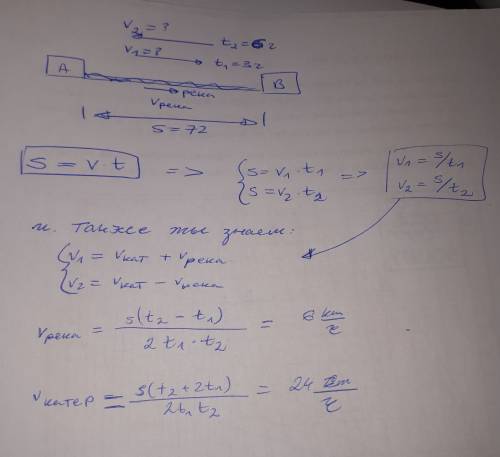 v₂ = ? t₂ = 6г
v₁ = ? t₁ = 3г
A B
река
vрека
S = 72
S = v · t => { S = v₁ · t₁ => v₁ = S/t₁
S = v₂ · t₂ v₂ = S/t₂
и. также ты знаем:
{ v₁ = vкат + vрека
v₂ = vкат - vрека
vрека = s(t₂ - t₁) / 2 t₁ · t₂ = 6 km/г
vкатер = s(t₂ + 2t₁) / 2t₁ t₂ = 24 km/г